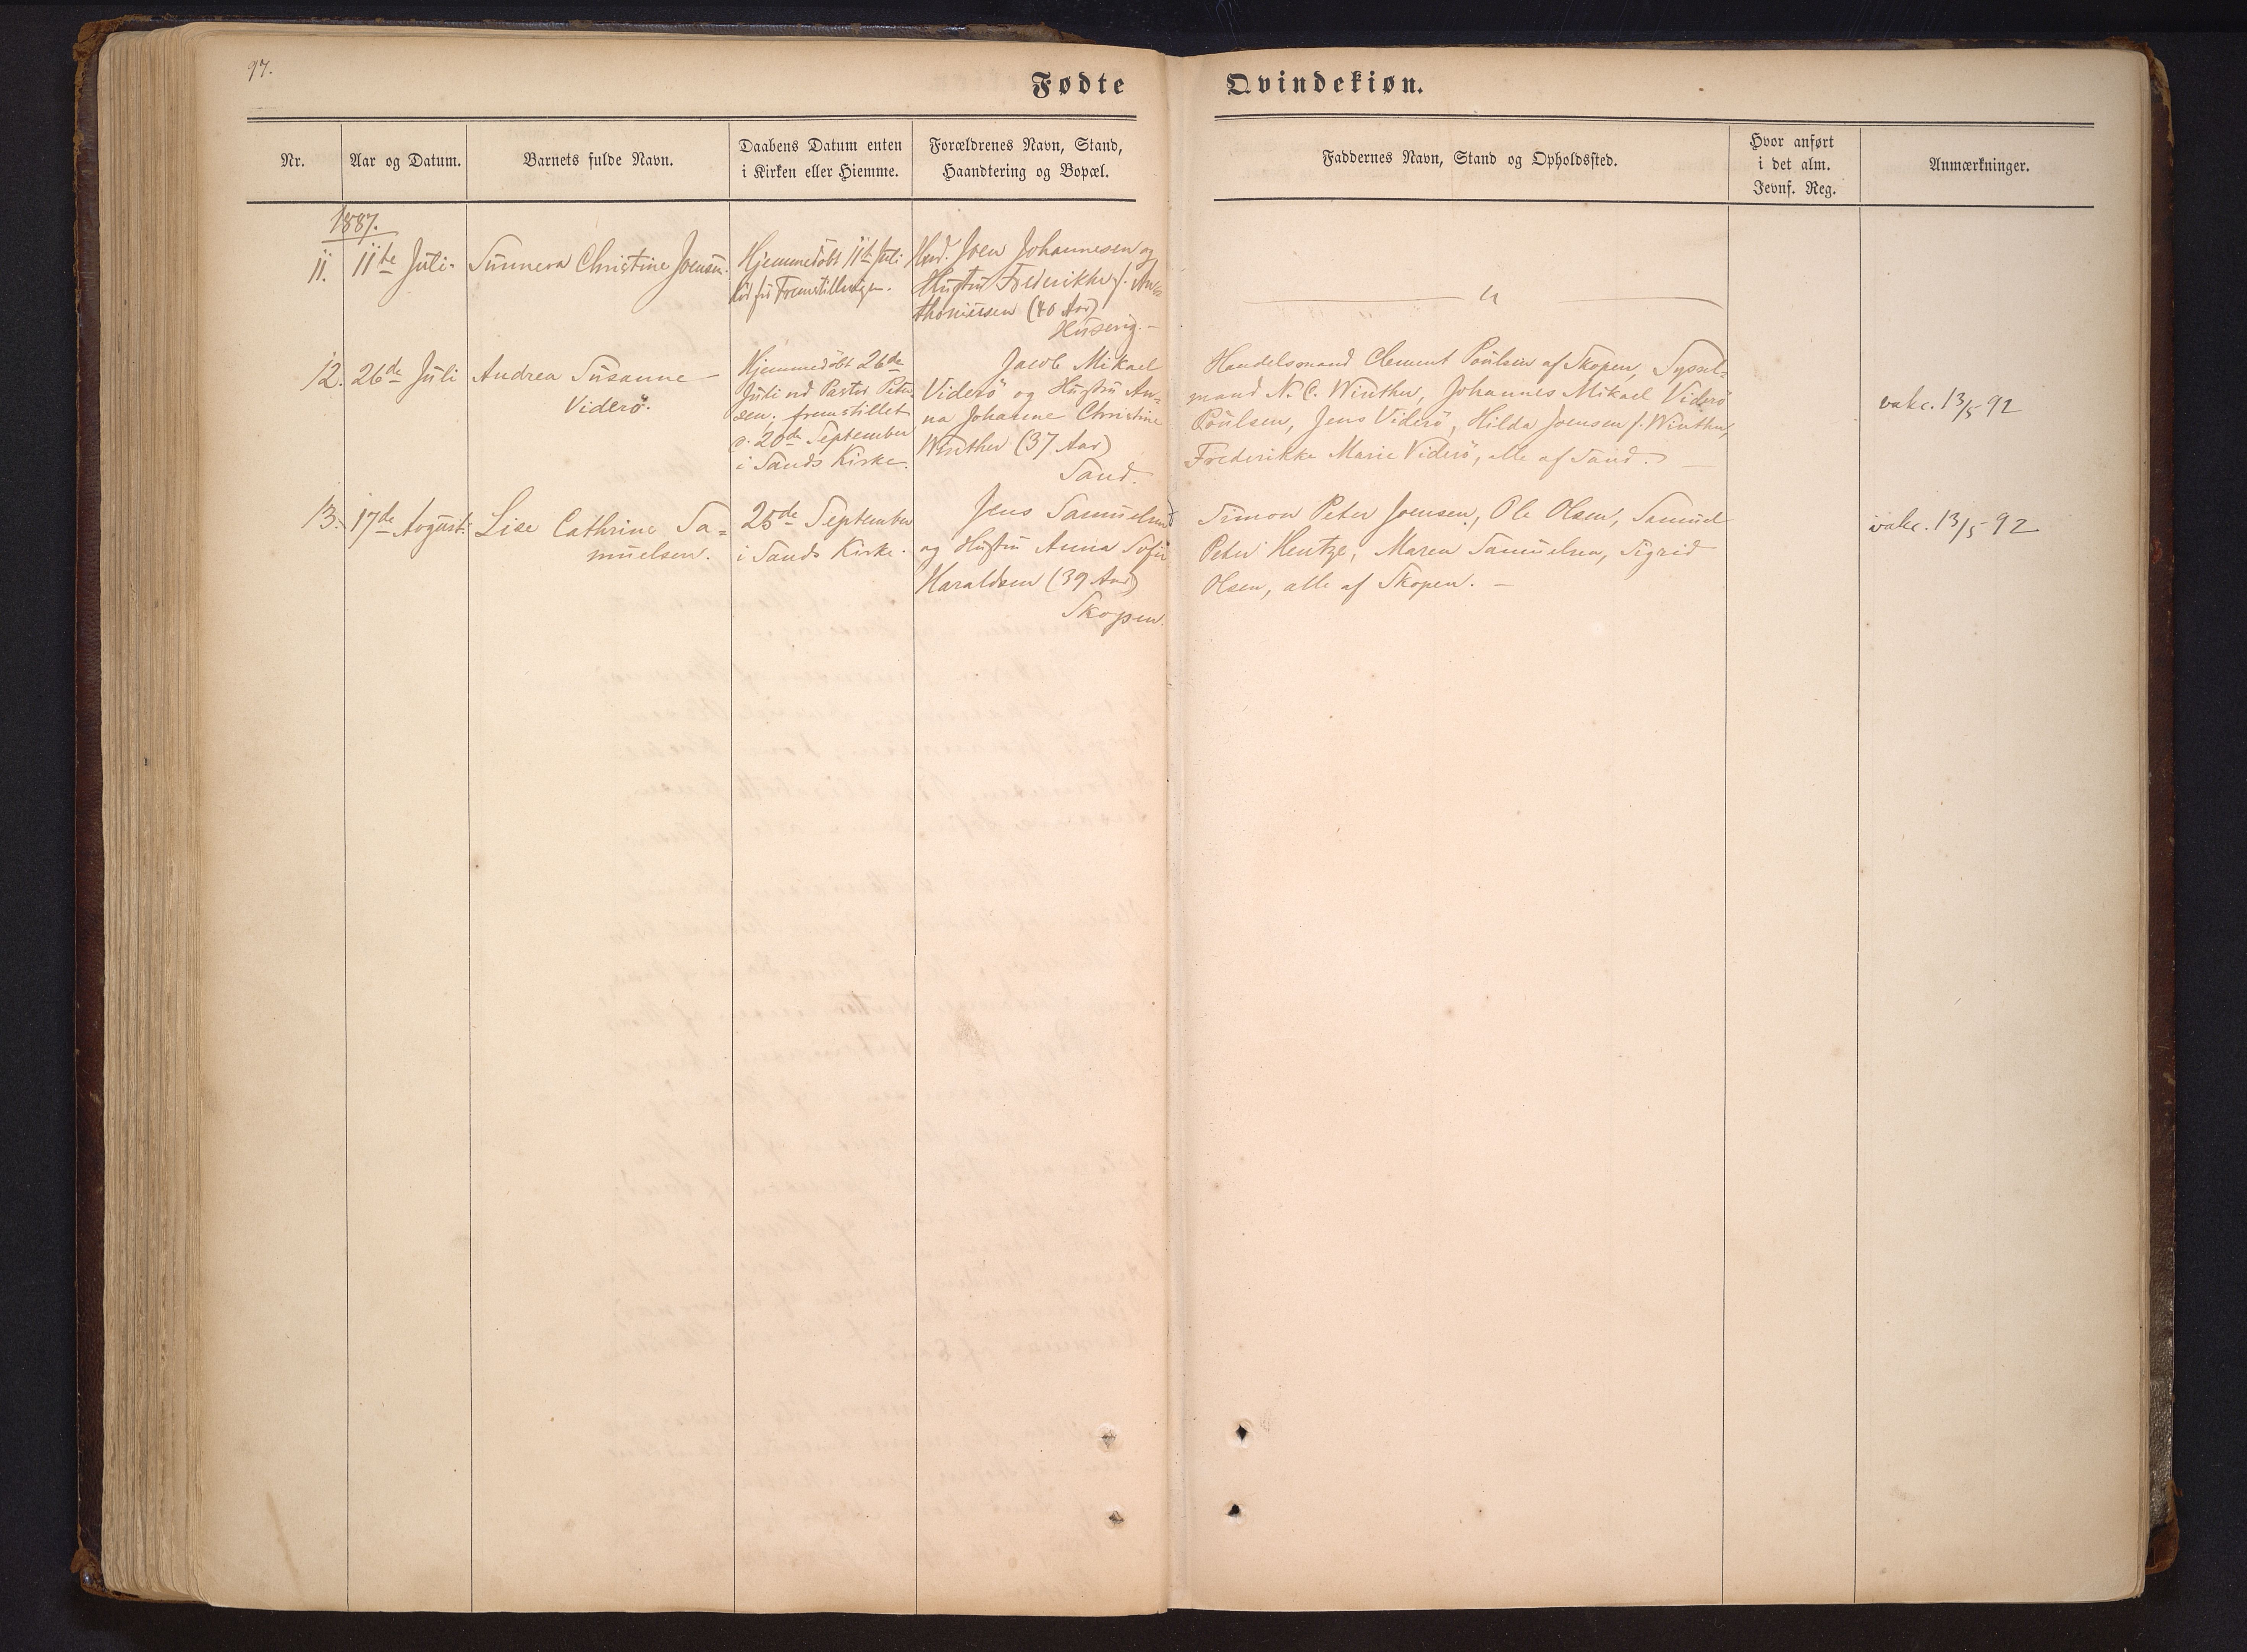 97.
Fødte Qvindekiøn.
Nr.
Aar og Datum.
Barnets fulde Navn.
Daabens Datum enten
i Kirken eller Hiemme.
Forældrenes Navn, Stand,
Haandtering og Bopæl.
Faddernes Navn, Stand og Opholdssted.
Hvor anført
i det alm.
Jevnf. Reg.
Anmærkninger.
1887.
11.
11te Juli.
Sunneva Christine Joensen.
Hjemmedöbt 11te Juli
död för Fremstillingen.
Joen Johannesen og
Hustru Frederikke f.
Thomassen (40 Aar)
Húsevig. -
12.
26de Juli
Andrea Susanne -
Viderö.
Hjemmedöbt 26de
Juli ved Pastor Peter-
sen; fremstillet
d. 20de September
i Sands Kirke.
Jacob Mikael
Viderö og Hustru An=
na Johanne Christine
Winther (37 Aar)
Sand.
Handelsmand Clement Poulsen af Skopen, Syssel-
mand N. C. Winther, Johannes Mikael Viderö
Poulsen, Jens Viderö, Hilda Joensen f. Winther,
Frederikke Marie Viderö, alle af Sand. -
vakc. 13/5 92
13.
17de August.
Lise Cathrine Sa=
muelsen.
25de September
i Sands Kirke.
Jens Samuelsen
og Hustru Anna Sofie
Haraldsen (39 Aar)
Skopen.
Simon Peter Joensen, Ole Olsen, Samuel
Peter Hentze, Maren Samuelsen, Sigrid
Olsen, alle af Skopen. -
vakc. 13/5 92